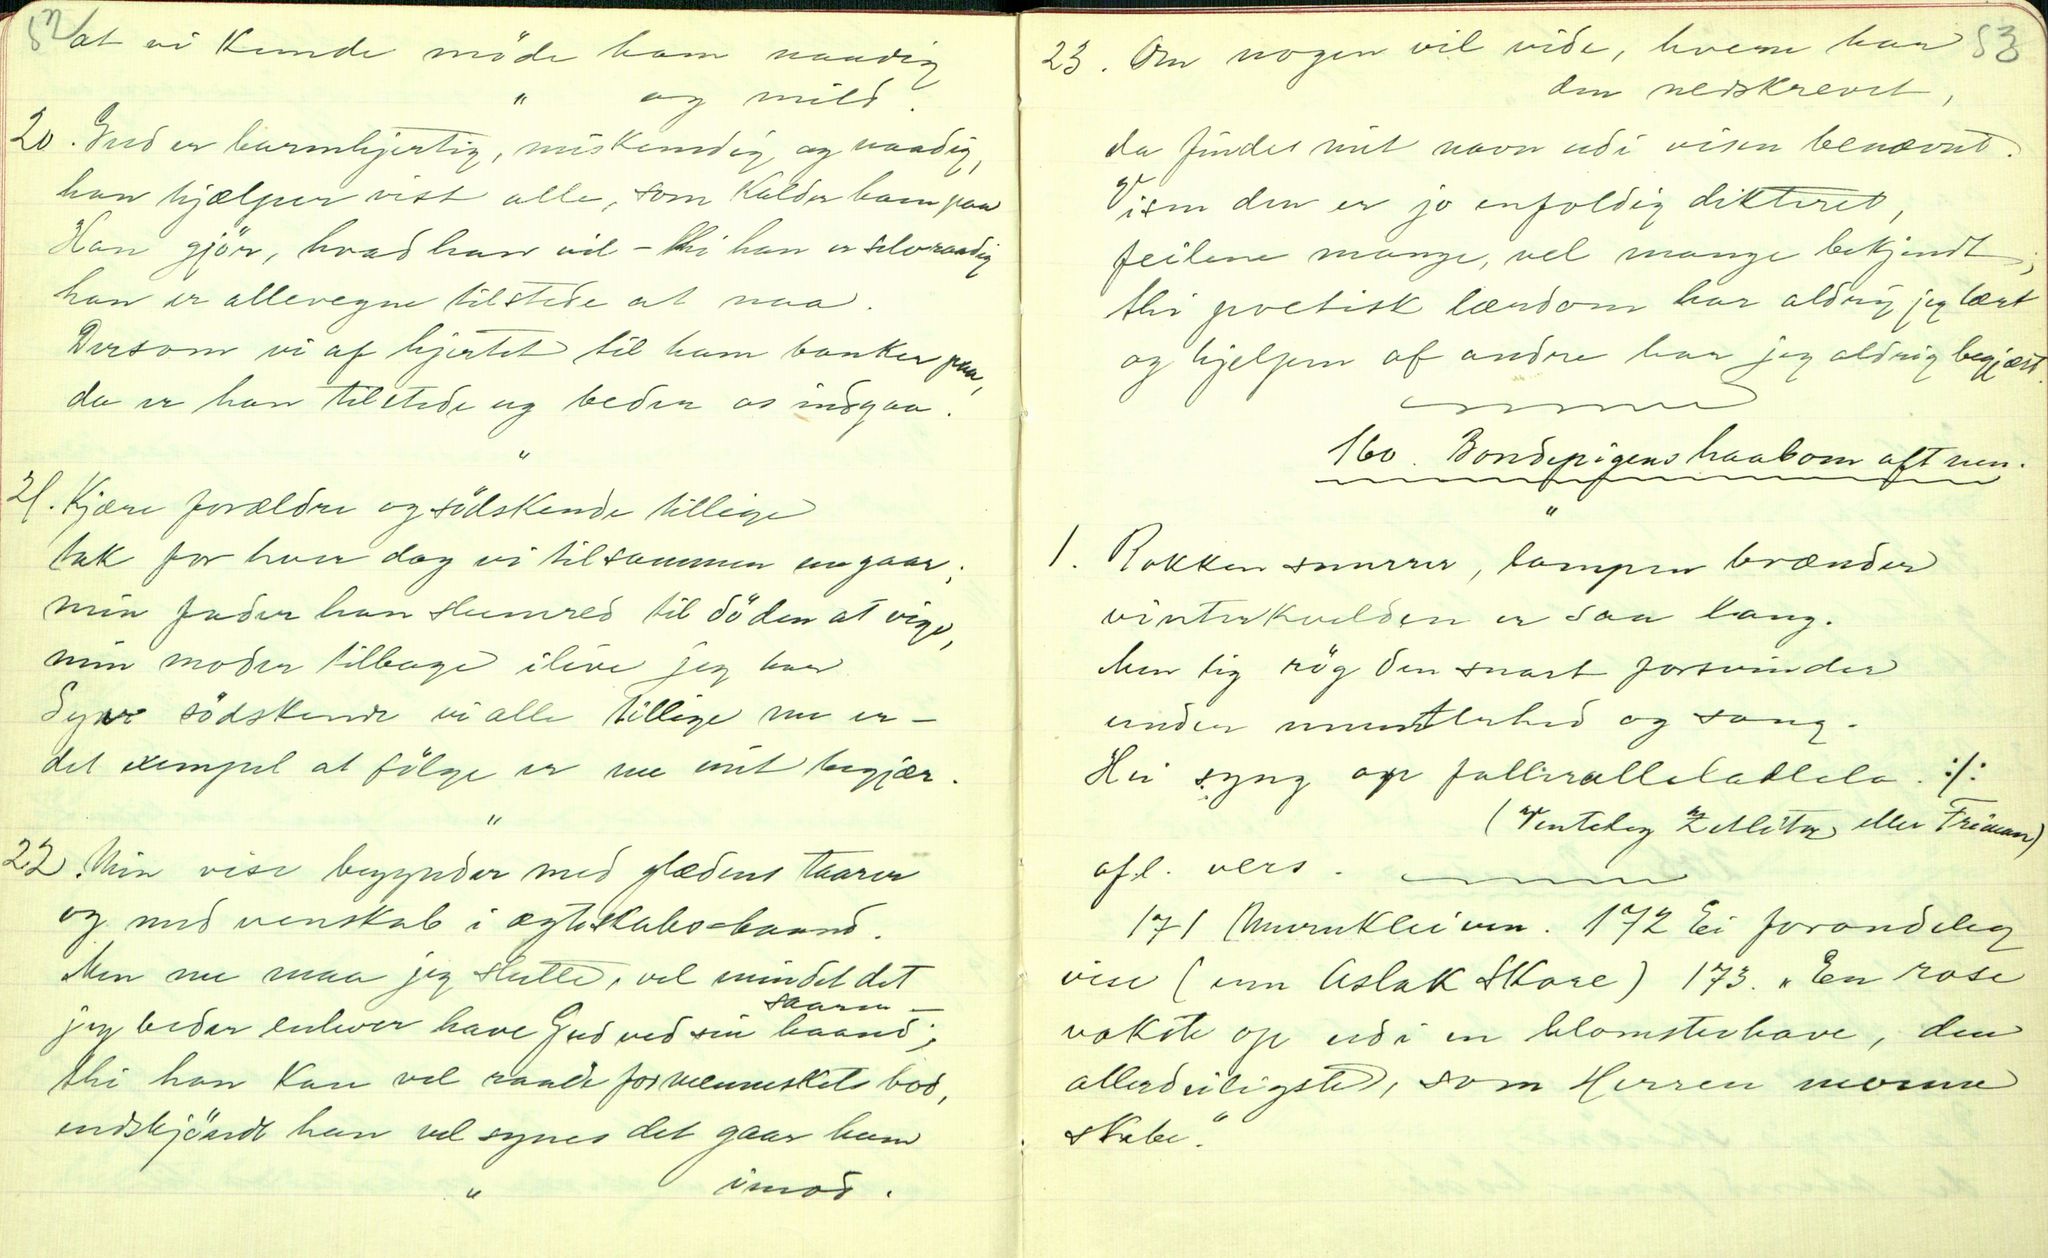 52
at vi kunde møde ham naadig
" og mild.
20. Gud er barmhjertig, miskundig og naadig,
han hjælper vist alle, som kalder ham paa
Han gjör, hvad han vil – thi han er selvraadig
han er allevegne tilstede at naa.
Dersom vi af hjertet til ham banker paa,
da er han tilstede og beder os indgaa.
"
21. Kjære forældre og södskende tillige
tak for hver dag vi tilsammen nu gaar;
min fader han slumred til döden at vige,
min moder tilbage ilive jeg har
Syv södskende vi alle tillige nu er –
det exempel at fölge er nu mit begjær.
"
22. Min vise begynder med glædens taarer
og med venskab i ægteskabs-baand.
Men nu maa jeg slutte, vel mindet det
saarer –
jeg beder enhver have Gud ved sin haand;
thi han kan vel raade for menneskets bod,
endskjöndt han vel synes det gaar ham
" imod.
53
23. Om nogen vil vide, hvem har
den nedskrevet,
da findes mit navn udi visen benævnt.
Visen den er jo enfoldig dikteret,
feilene mange, vel mange bekjendt;
thi poetisk lærdom har aldrig jeg lært
og hjelpen af andre har jeg aldrig begjært.
160. Bondepigens haab om aftnen.
"
1. Rokken snurrer, lampen brænder
vinterkvelden er saa lang.
Men lig røg den snart forsvinder
under munterhed og sang.
Hei syng op fallerallelallela. :/:
(Ventelig Zetlitz eller Friman)
af l. vers.
171 Murukleiven. 172 Ei forandeleg
vise (um Aslak Skare) 173. "En rose
vokste op udi en blomsterhave, den
allerdeiligste, som Herren monne
skabe."